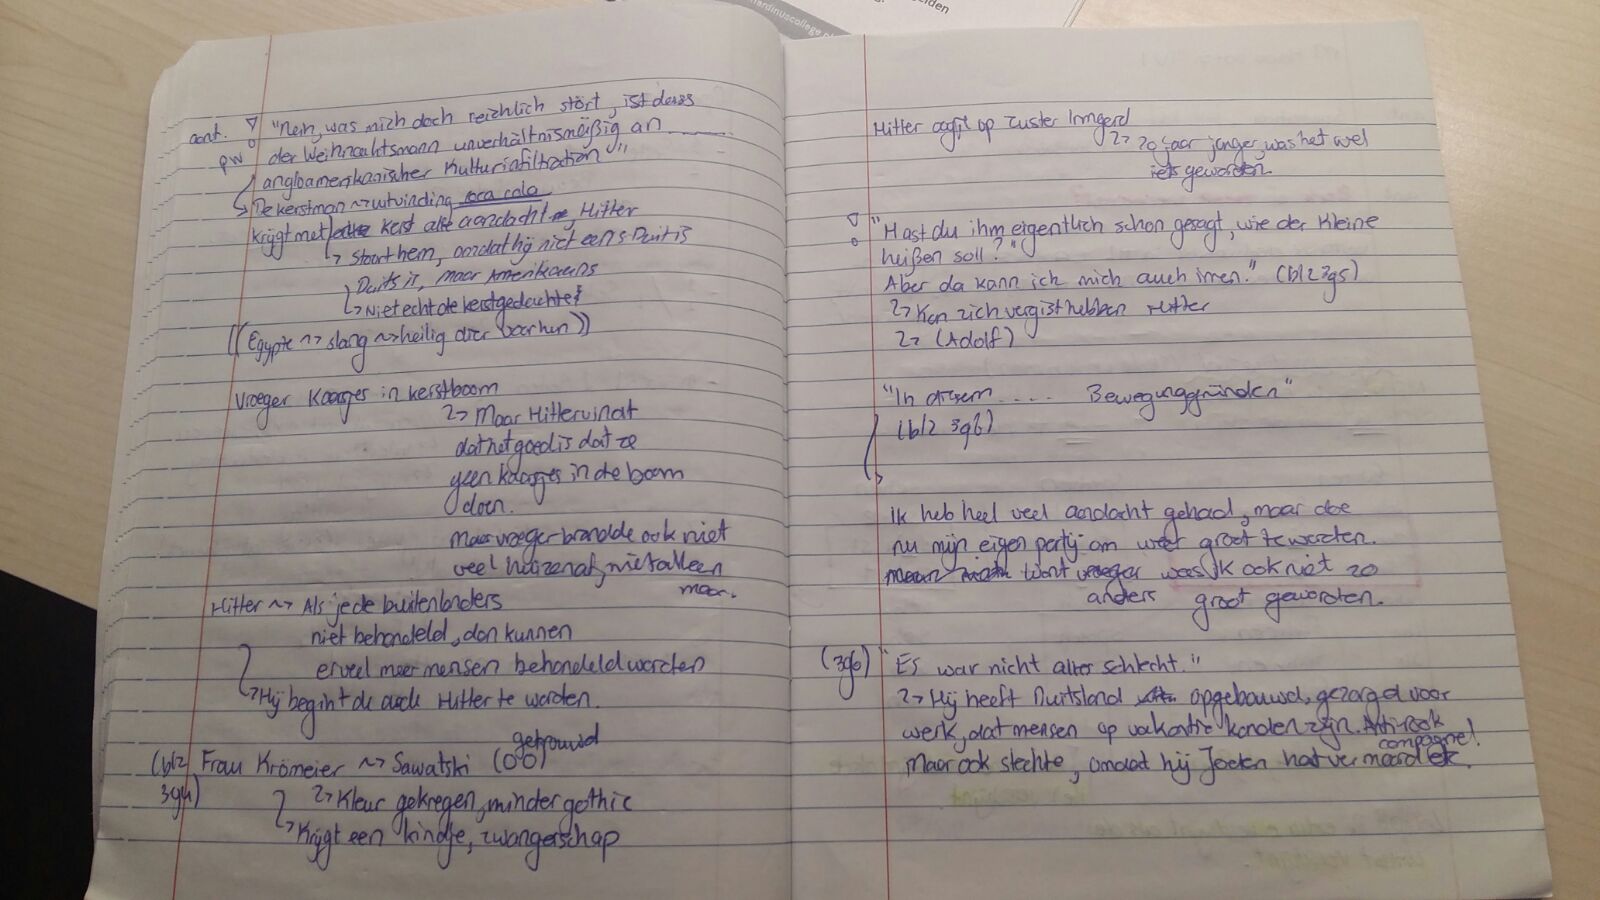 elden
ardinuscollege.nl
aant. "Nein, was mich doch reichlich stört, ist dass
pw der Weihnachtsmann unverhältnismäßig an
angloamerikanischer Kulturinfiltration"
De kerstman ~> uitvinding coca cola
krijgt met kerst alle aandacht, Hitler
↳ stoort hem, omdat hij niet eens Duits
Duits is, maar Amerikaans
↳ Niet echt de kerstgedachte
((Egypte ~> slang ~> heilig dier voor hen))
Vroeger Kaarsjes in kerstboom
↳ Maar Hitler vindt
dat het goed is dat ze
geen kaarsjes in de boom
doen.
maar vroeger brandde ook niet
veel huizen af, niet alleen
maar.
Hitler ~> Als je de buitenlanders
niet behandeld, dan kunnen
er veel meer mensen behandeld worden
↳ Hij begint de oude Hitler te worden.
getrouwd
(blz Frau Krömeier ~> Sawatski (OO)
394) ↳ Kleur gekregen, minder gothic
↳ Krijgt een kindje, zwangerschap
Hitler op zuster Irmgard
↳ 20 jaar jonger, was het wel
iets geworden.
"Hast du ihm eigentlich schon gesagt, wie der Kleine
heißen soll?"
Aber da kann ich mich auch irren." (blz 395)
↳ Kan zich vergist hebben Hitler
↳ (Adolf)
"In diesem .... Bewegungsgründen"
(blz 396)
Ik heb heel veel aandacht gehad, maar doe
nu mijn eigen partij om weer groot te worden.
want vroeger was ik ook niet zo
anders groot geworden.
(396) "Es war nicht alles schlecht."
↳ Hij heeft Duitsland opgebouwd, gezorgd voor
werk, dat mensen op vakantie konden zijn. Anti-rook
compagne!
Maar ook slechte, omdat hij Joden had vermoord etc.